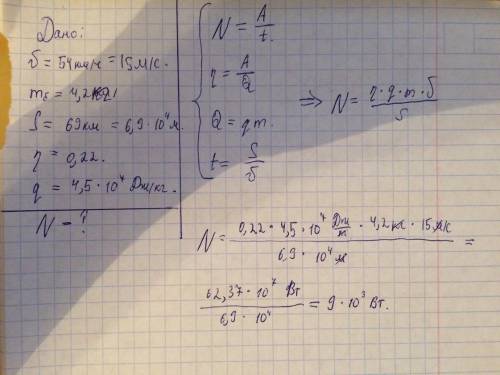 Дано:
υ = 54 км/ч = 15 м/с.
m = 4,2 кг
S = 69 км = 6,9 · 10⁴ м.
η = 0,22.
q = 4,5 · 10⁷ Дж/кг.
N - ?
N = A/t.
η = A/Q
Q = qm.
t = S/υ
=> N = η · q · m · υ / S
N = 0,22 · 4,5 · 10⁷ Дж/кг · 4,2 кг · 15 м/с / 6,9 · 10⁴ м =
62,37 · 10⁷ Вт / 6,9 · 10⁴ = 9 · 10³ Вт.